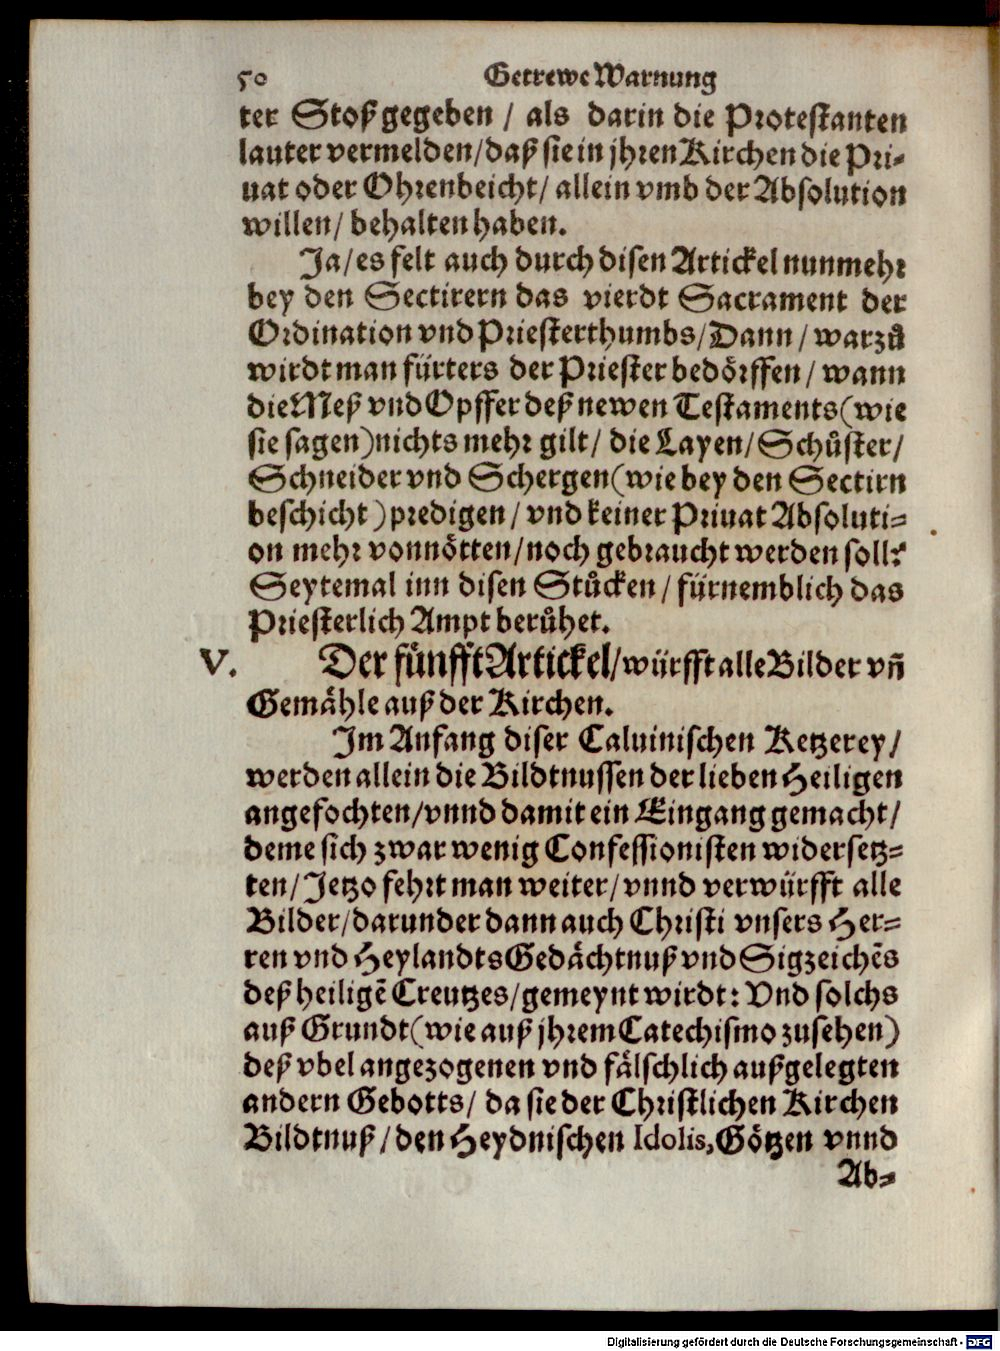 50 Getrewe Warnung
ter Stoß gegeben / als darin die Protestanten
lauter vermelden/daß sie in jhren Kirchen die Pri-
uat oder Ohrenbeicht/ allein vmb der Absolution
willen/ behalten haben.
Ja/es felt auch durch disen Artickel nunmehr
bey den Sectirern das vierdt Sacrament der
Ordination vnd Priesterthumbs/Dann / warzů
wirdt man fürters der Priester bedörffen/ wann
die Meß vnd Opffer deß newen Testaments(wie
sie sagen)nichts mehr gilt/ die Layen/Schůster/
Schneider vnd Schergen(wie bey den Sectirn
beschicht)predigen/ vnd keiner Priuat Absoluti-
on mehr vonnötten/noch gebraucht werden soll?
Seytemal inn disen Stůcken/ fürnemblich das
Priesterlich Ampt berůhet.
V. Der fünfft Artickel/würfft alle Bilder vñ
Gemåhle auß der Kirchen.
Im Anfang diser Caluinischen Ketzerey/
werden allein die Bildtnussen der lieben Heiligen
angefochten/vnnd damit ein Eingang gemacht/
deme sich zwar wenig Confessionisten widersetz-
ten/Jetzo fehrt man weiter/vnnd verwürfft alle
Bilder/darunder dann auch Christi vnsers Her-
ren vnd Heylandts Gedåchtnuß vnd Sigzeichẽs
deß heiligẽ Creutzes/gemeynt wirdt: Vnd solchs
auß Grundt(wie auß jhrem Catechismo zusehen)
deß vbel angezogenen vnd fålschlich außgelegten
andern Gebotts/ da sie der Christlichen Kirchen
Bildtnuß/den Heydnischen Idolis, Götzen vnnd
Ab-
Digitalisierung gefördert durch die Deutsche Forschungsgemeinschaft - DFG